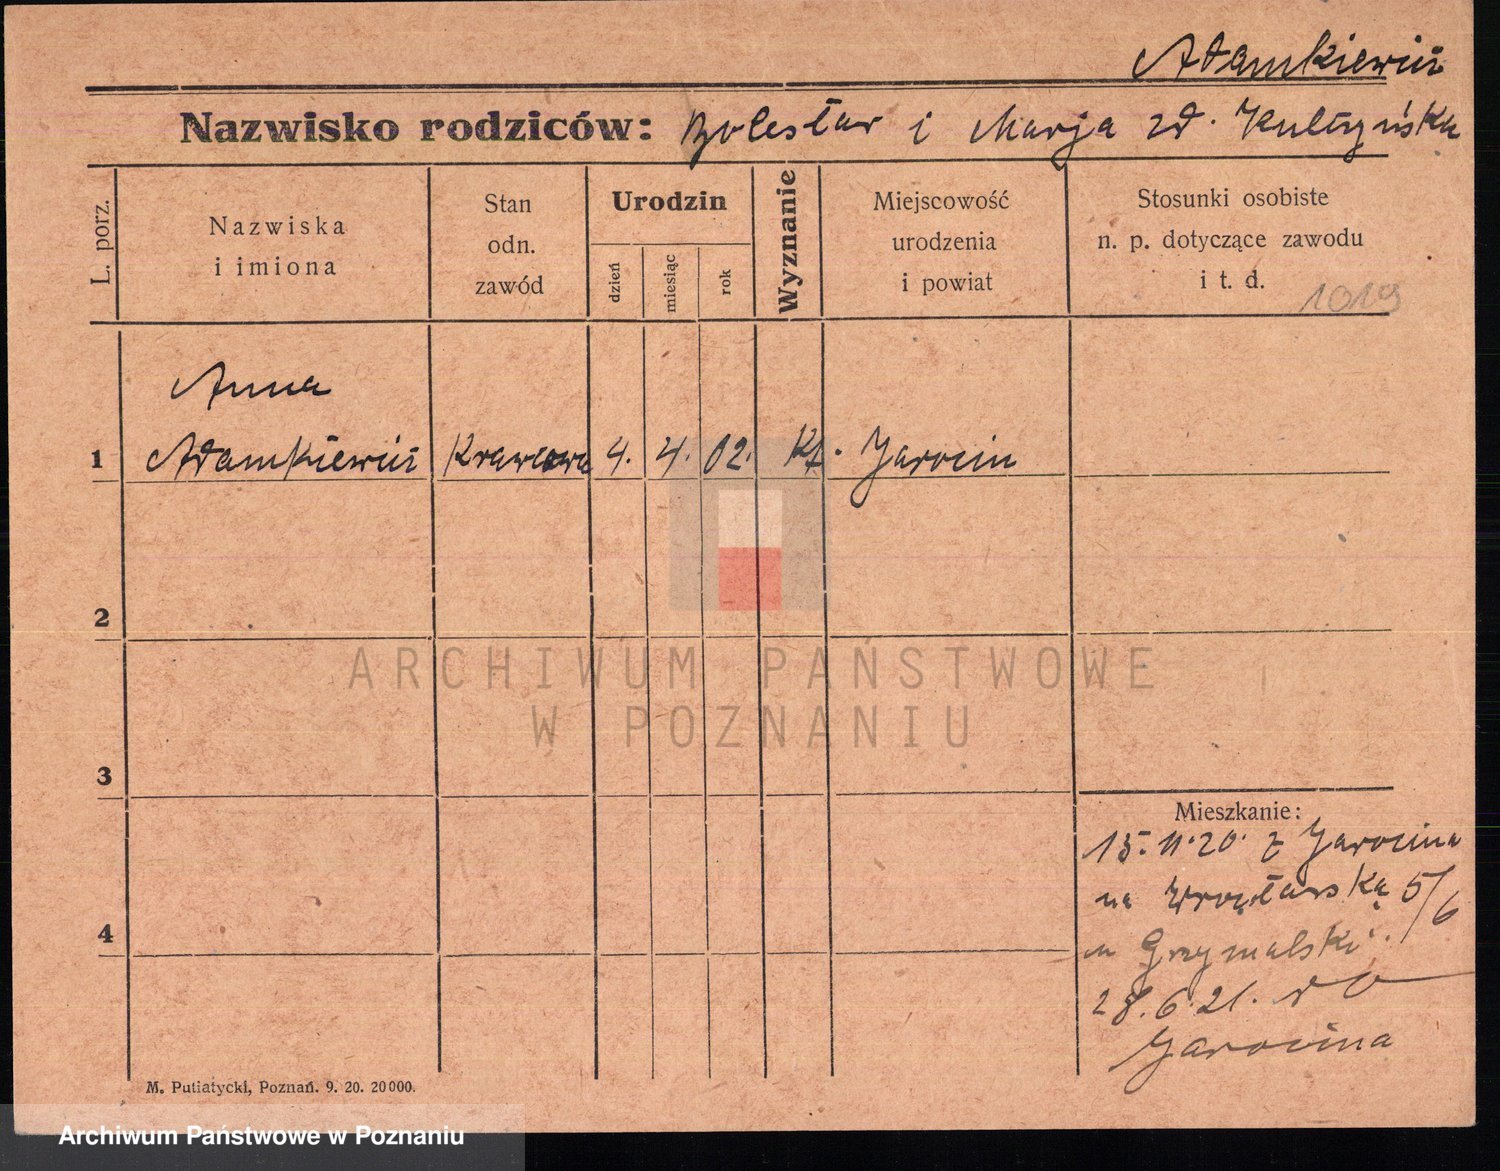 Adamkiewicz
Nazwisko rodziców: Bolesław i Marja zd.
L. porz.
Nazwiska
i imiona
Stan
odn.
zawód
Urodzin
dzień
miesiąc
rok
Wyznanie
Miejscowość
urodzenia
i powiat
Stosunki osobiste
n. p. dotyczące zawodu
i t. d.
1019
Anna
1 Adamkiewicz Krawcowa 4. 4. 02. Kt. Jarocin
2
3
4
ARCHIWUM PAŃSTWOWE
W POZNANIU
Mieszkanie:
15.11.20. z Jarocina
na Wrocławską 5/6
u Grzymalski.
28.6.21. do
Jarocina
M. Putiatycki, Poznań. 9. 20. 20000.
Archiwum Państwowe w Poznaniu